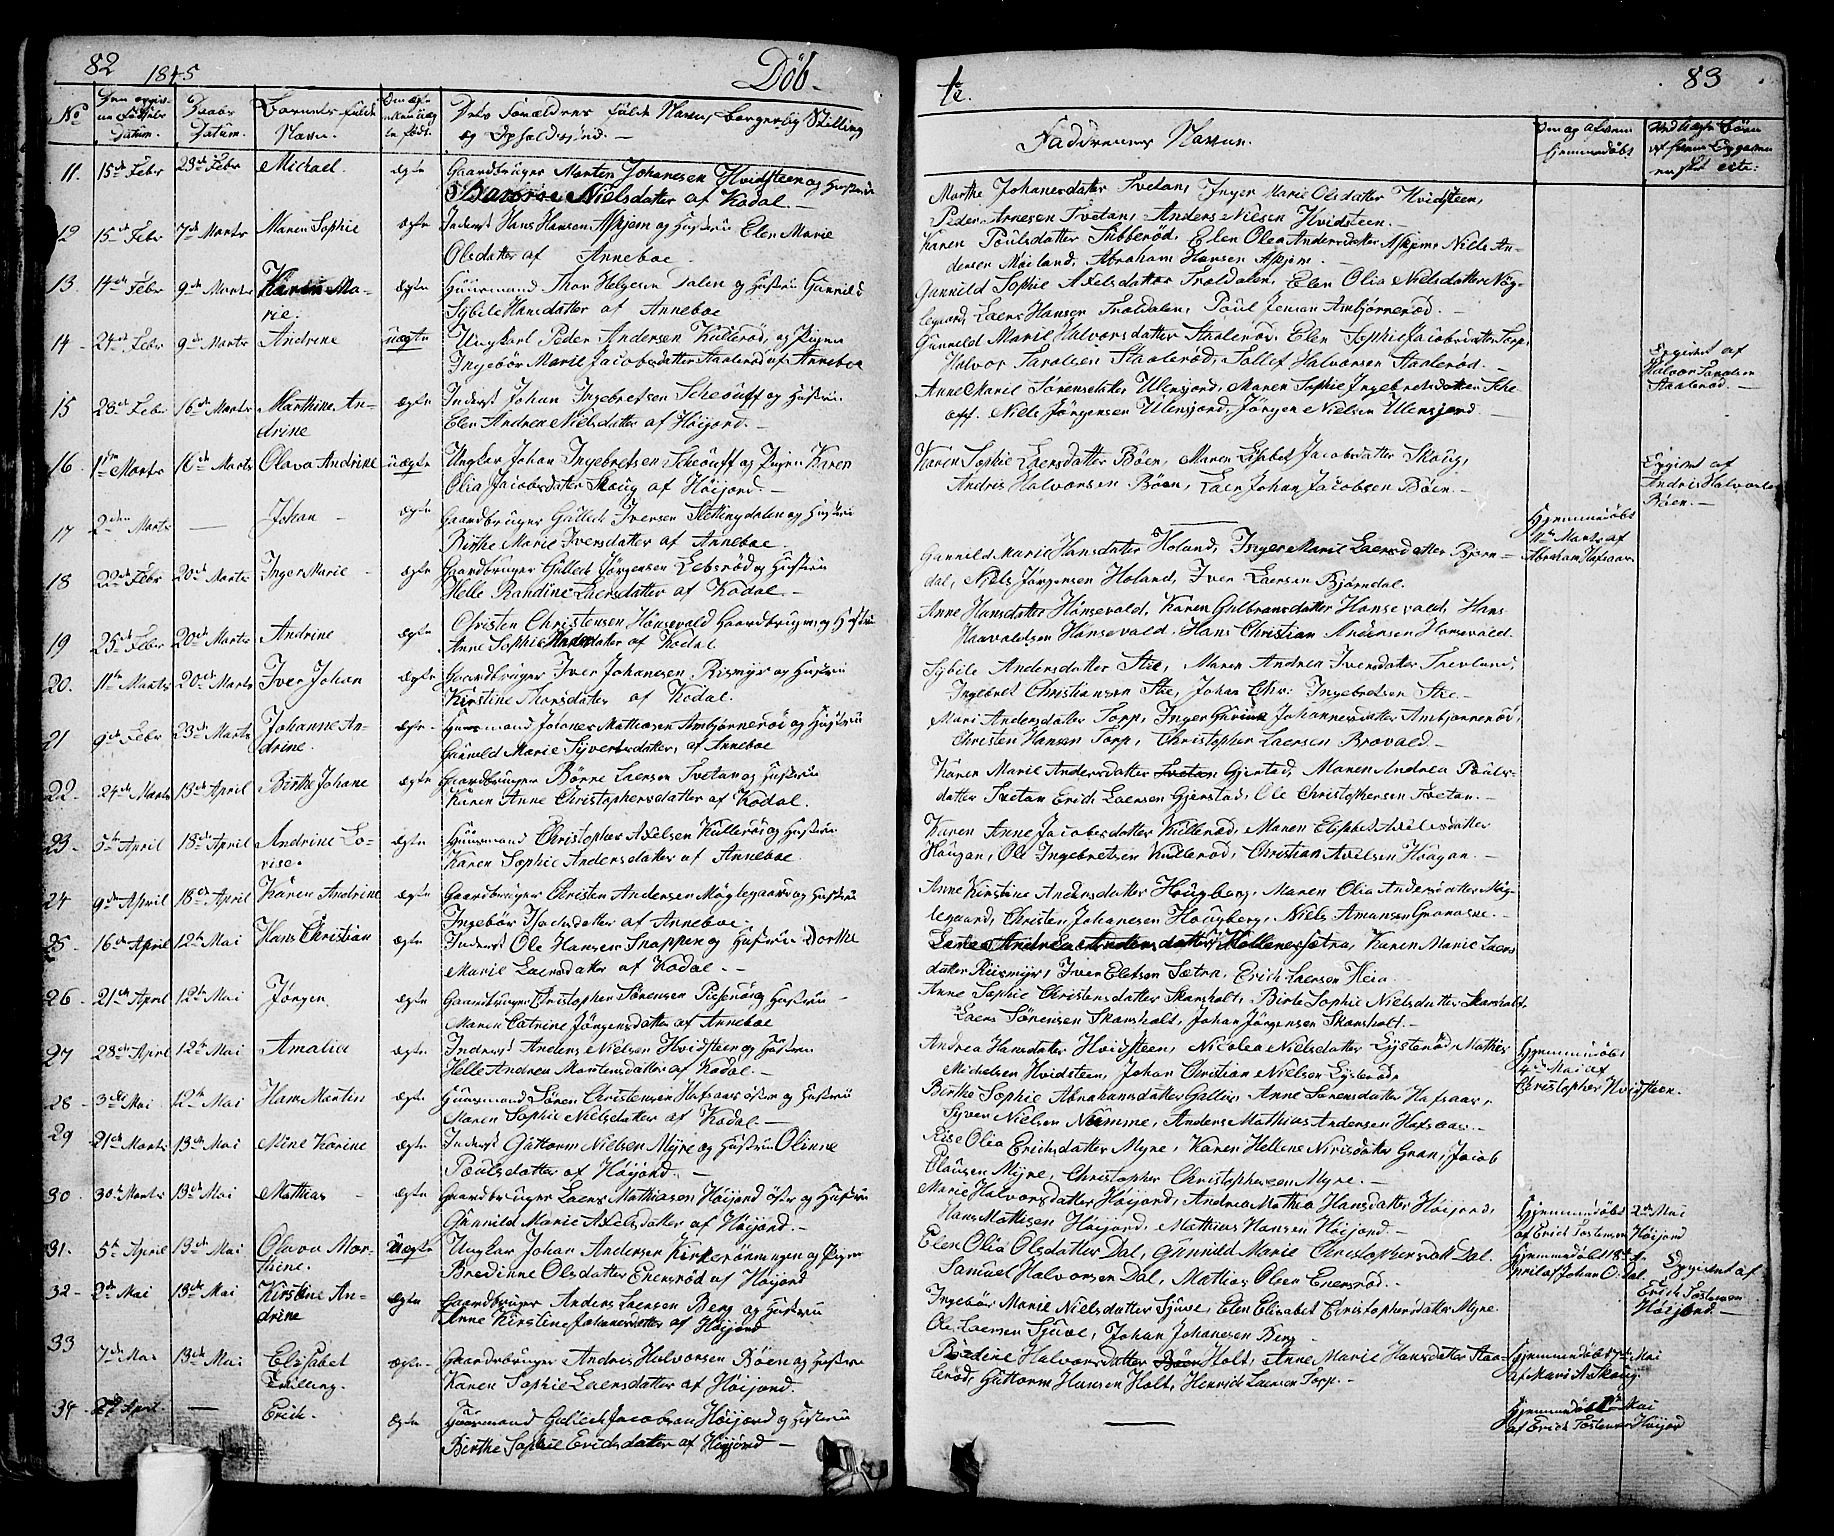 82 1845 Döb-
No Den opgiv- ne Fødsels Datum. Daabs Datum. Barnets fulde Navn. Om ægte eller uæg- te født. Dets Forældres fulde Navn, borgerlig Stilling
og Opholdssted. —
11. 15de Febr 23de Febr Michael. ægte Gaardbruger Morten Johanesen Hvidsteen og Hustrue
Nielsdatter af Kodal. —
12 15de Febr 7de Marts Maren Sophie ægte Inderst Hans Hansen Askjem og Hustru Elen Marie
Olsdatter af Anneboe. —
13. 14de Febr 9de Marts Karen Ma- ægte Huusmand Thor Helgesen Dalen og Hustru Gunnild
rie. Sybile Hansdatter af Anneboe
14 - 24de Febr 9de Marts Andrine uægte Ungkarl Peder Andersen Kullerød, og Pigen
Ingebör Marie Jacobsdatter Staalerød af Anneboe
15 28de Febr 16de Marts Marthine An- ægte Inderst Johan Ingebretsen Scheouff og Hustru
drine Elen Andrea Nielsdatter af Höijord. —
16. 1ste Marts 16de Marts Olava Andrine uægte Ungkar Johan Ingebretsen Scheouff og Pigen Karen
Olia Jacobsdatter Skoug af Höijord. —
17 2den Marts — Johan - ægte Gaardbruger Gullich Iversen Slettingdalen og Hustru
Birthe Marie Iversdatter af Anneboe.
18 22de Febr 20de Marts Inger Marie - ægte Gaardbruger Gullich Jörgensen Lebsröd og Hustru
Helle Randine Laersdatter af Kodal. —
19 25de Febr 20de Marts Andrine ægte Christen Christensen Hönsevald Gaardbruger og Hustru
Anne Sophie datter af Kodal
20. 11te Marts 20de Marts Iver Johan ægte Gaardbruger Iver Johanesen Rismyr og Hustru
Kirstine Thorsdatter af Kodal.
21 9de Febr 23de Marts Johanne An- ægte - Huusmand Johanes Mathiasen Ambjørneröd og Hustru
drine. Gunild Marie Syvertsdatter, af Anneboe
22. 24de Marts 13de April Birthe Johane ægte Gaardbruger Börre Laersen Tvetan og Hustru
Karen Anne Christophersdatter af Kodal.
23. 5te April 18de April Andrine Lo- ægte Huusmand Christopher Axelsen Kulleröd og Hustru
vise. Karen Sophie Andersdatter af Anneboe.
24 9de April 18de April Karen Andrine ægte Gaardbruger Christen Andersen Möglegaard og Hustru
Ingebör datter af Anneboe.
25. 16de April 12te Mai Hans Christian ægte Inderst Ole Hansen Trappen og Hustru Dorthe
Marie Laersdatter af Kodal. —
26 - 21de April 12te Mai Jörgen ægte Gaardbruger Christopher Sörensen og Hustru -
Maren Catrine Jörgensdatter af Anneboe
27 28de April 12te Mai Amalia ægte Inderst Anders Nielsen Hvidsteen og Hustru
Helle Andrea Mortensdatter af Kodal. —
28 - 3die Mai 12te Mai Hans Martin ægte Huusmand Sören Christensen Hafsaas öster og Hustru
Maren Sophie Nielsdatter af Kodal —
29 21de Marts 13de Mai Mine Karine ægte Inderst Guttorm Nielsen Myre og Hustru Olinne
Poulsdatter af Höijord. —
30. 30te Marts 13de Mai Mathias - ægte Gaardbruger Laers Mathiasen Höijord öster og Hustru
Gunnild Marie Axelsdatter af Höijord. —
31. 5te April 13de Mai Olava Mar- uægte Ungkar Johan Andersen Kirkerönningen og Pigen
thine. Bredinne Olsdatter Enersröd af Höijord
32 - 2de Mai 13de Mai Kirstine An- ægte Gaardbruger Anders Laersen Berg og Hustru
drine Anne Kirstine Johanesdatter af Höijord
33 7de Mai 13de Mai Elisabet ægte - Gaardbruger Andris Halvorsen Böen og Hustru
Karen Sophie Laersdatter af Höijord.
34 - April — Erich. ægte Huusmand Gullich Jacobsen Höijord og Hustru
Birthe Sophie Erichsdatter af Höijord —
te. 83
Faddrenes Navne. Om og af hvem hjemmedöbt
Marthe Johanesdatter Tvetan, Inger Marie Olsdatter Hvidsteen,
Peder Arnesen Tvetan, Anders Nielsen Hvidsteen.
Karen Poulsdatter Tubberød, Elen Olea Andersdatter Askjem, Niels An-
dersen Möiland, Abraham Hansen Askjem. —
Gunnild Sophie Axelsdatter Troldalen, Elen Olia Nielsdatter Nög-
legaard, Laers Hansen Troldalen, Poul Jensen Ambjørnerød. —
Gunnild Marie Halvorsdatter Staalerød, Elen Sophie Jacobsdatter Torp,
Halvor Staalerød, Tollef Halvorsen Staalerød. —
Opgivet af
Halvor
Staalerød. —
Anne Marie Sörensdatter Ulensjord, Maren Sophie Ingebretsdatter Sche-
ouff. Niels Jörgensen Ulensjord, Jörgen Nielsen Ulensjord. —
Karen Sophie Laersdatter Böen, Maren Lisbet Jacobsdatter Skoug,
Andris Halvorsen Böen, Laers Johan Jacobsen Böen. —
Opgivet af
Andris Halvorsen
Böen. —
Hjemmedöbt
11te Marts af
Abraham Hafsaas.
Gunnild Marie Hansdatter Holand, Inger Marie Laersdatter Bjørn-
dal, Niels Jörgensen Holand, Iver Laersen Bjørndal.
Anne Hansdatter Hönsevald, Karen Gulbransdatter Hönsevald, Hans
Haavaldsen Hönsevald. Hans Christian Andersen Hönsevald.
Sybile Andersdatter Skie, Maren Andrea Iversdatter Trevland,
Ingebret Christiansen Skie, Johan Chr: Ingebretsen Skie —
Mari Andersdatter Torp, Inger Johannesdatter Ambjørneröd,
Christen Hansen Torp, Christopher Laersen Brovald —
Karen Marie Andersdatter Tvetan Gjerstad, Maren Andrea Pouls-
datter Tvetan Erich Laersen Gjerstad, Ole Christophersen Tvetan. —
Karen Anne Jacobsdatter Kulleröd, Maren Elisabet Axelsdatter
Hougan, Ole Ingebretsen Kulleröd, Christian Axelsen Hougan. —
Anne Kirstine Andersdatter Hougberg, Maren Olia Andersdatter Mög-
legaard, Christen Johanesen Hougberg, Niels Amunsen —
Andrea Andersdatter Sætra, Karen Marie Laers
datter Riismyr, Iver Elefsen Sætra, Erich Laersen Heia
Anne Sophie Christensdatter Skarsholt, Birte Sophie Nielsdatter Skarsholt
Laers Sörensen Skarsholt, Johan Jörgensen Skarsholt. —
Andrea Hansdatter Hvidsteen, Nicolea Nielsdatter Lysteröd, Mathis
Michelsen Hvidsteen, Johan Christian Nielsen Lysteröd.
Hjemmedöbt
4de Mai af
Christopher Hvidsteen.
Birthe Sophie Abrahamsdatter Gallis, Anne Sörensdatter Hafsaas,
Syver Nielsen Nomme, Anders Mathias Andersen Hafsaas. —
Rise Olia Erichsdatter Myre, Karen Hellene Nirisdatter Gran, Jacob
Clausen Myre, Christopher Christophersen Myre. —
Marie Halvorsdatter Höijord, Andrea Mathea Hansdatter Höijord,
Hans Mathisen Höijord, Mathias Hansen Höijord. —
Hjemmedöbt 2den Mai
af Erich Tostensen Höijord
Elen Olia Olsdatter Dal, Gunnild Marie Christophersdatt Dal.
Samuel Halvorsen Dal, Mathias Olsen Enersröd. —
Hjemmedöbt 18de A-
pril af Johan O. Dal.
Opgivet af
Erich Tostensen
Höijord —
Ingebör Marie Nielsdatter Sjuve, Elen Elisabet Christophersdatter Myre.
Ole Laersen Sjuve, Johan Johanesen Berg —
Bredine Halvorsdatter Böen Holt, Anne Marie Hansdatter Staa-
lerød, Guttorm Hansen Holt, Henrich Laersen Torp. —
Hjemmedöbt 7de Mai
af Mari A. Skoug.
Hjemmedöbt Mai
af Erich Tostensen Höijord